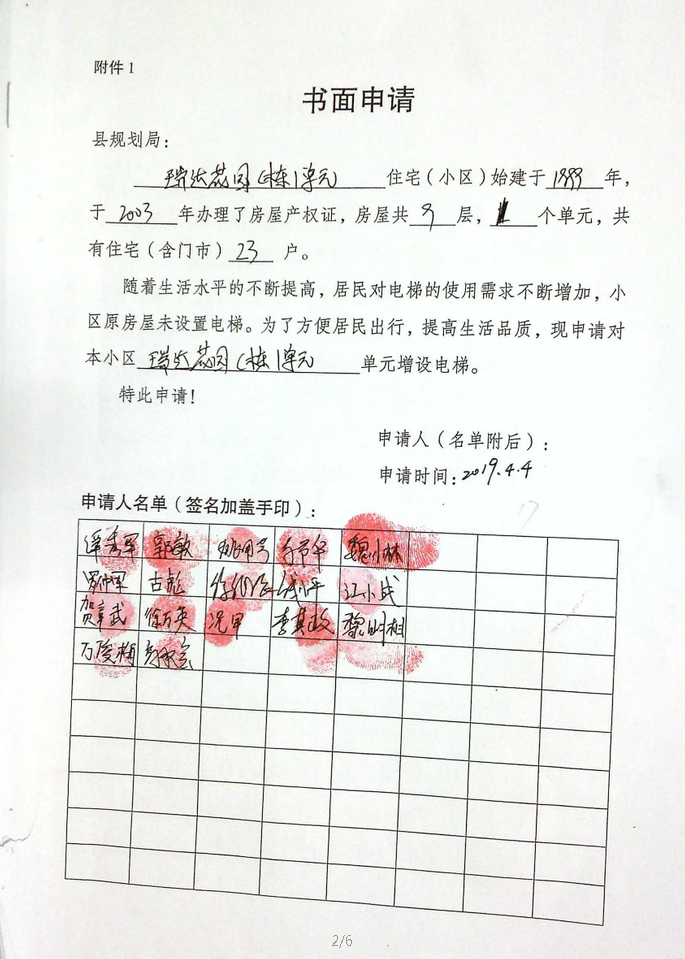 附件1
书面申请
县规划局:
瑞达花园C栋1单元 住宅(小区)始建于1999年,
于2003年办理了房屋产权证,房屋共9层,1个单元,共
有住宅(含门市)23户。
随着生活水平的不断提高,居民对电梯的使用需求不断增加,小
区原房屋未设置电梯。为了方便居民出行,提高生活品质,现申请对
本小区瑞达花园C栋1单元 单元增设电梯。
特此申请!
申请人(名单附后):
申请时间:2019.4.4
申请人名单(签名加盖手印):
谭秀军 郭敏 魏小林
罗仲军 古彪 江小战
贺章武 徐万英 况甲 李其政 黎明相
万陵梅
2/6